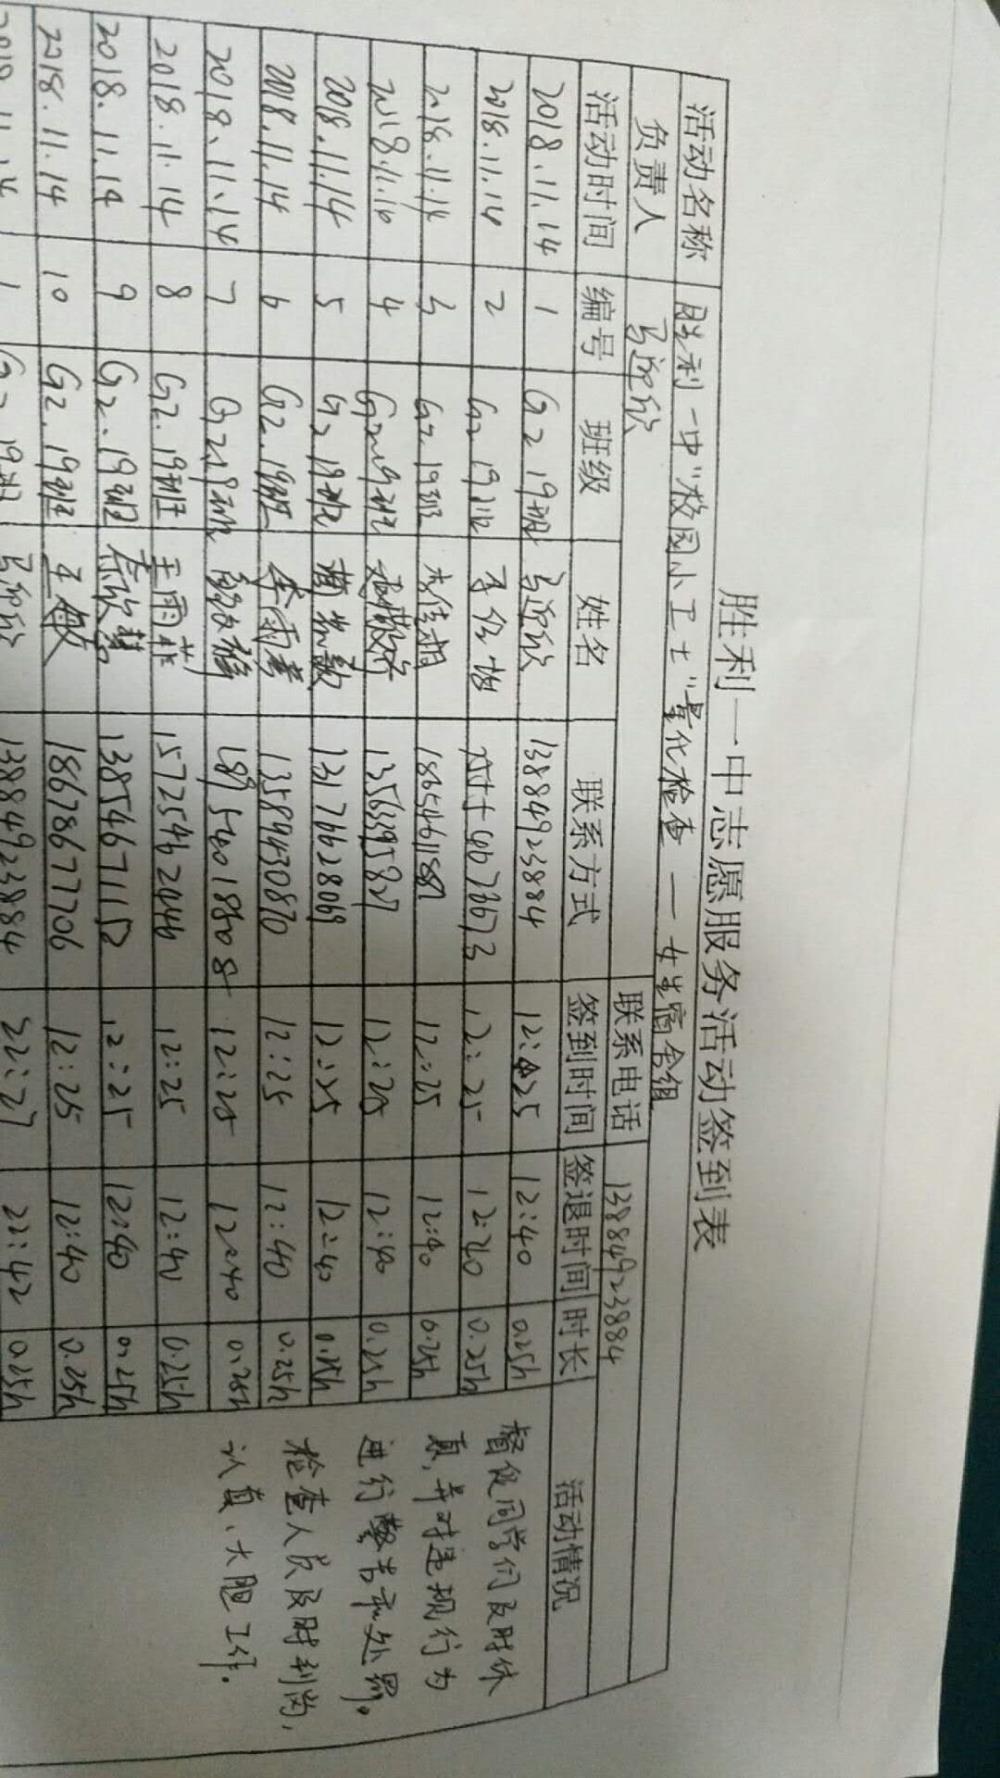 胜利一中志愿服务活动签到表
活动名称 胜利一中"校园小卫士"量化检查一女生宿舍组
负责人 马迎欣 联系电话 13884923884
活动时间 编号 班级 姓名 联系方式 签到时间 签退时间 时长 活动情况
2018.11.14 1 G2 19班 马迎欣 13884923884 12:25 12:40 0.25h
2018.11.14 2 G2 19班 12:25 12:40 0.25h
2018.11.14 3 G2 19班 12:25 12:40 0.25h
4 G2 19班 12:25 12:40 0.25h
2018.11.14 5 G2 19班 13176628069 12:25 12:40 0.25h
2018.11.14 6 G2.19班 13589430870 12:25 12:40 0.25h
2018.11.14 7 G2 19班 12:25 12:40 0.25h
2018.11.14 8 G2.19班 王雨菲 15725462444 12:25 12:40 0.25h
2018.11.14 9 G2.19班 13854671152 12:25 12:40 0.25h
2018.11.14 10 G2.19班 王敏 18678677706 12:25 12:40 0.25h
1 马迎欣 13884923884 22:27 22:42 0.25h
督促同学们及时休
息,并对违规行为
进行警告和处罚。
检查人员及时到岗,
认真、大胆工作.